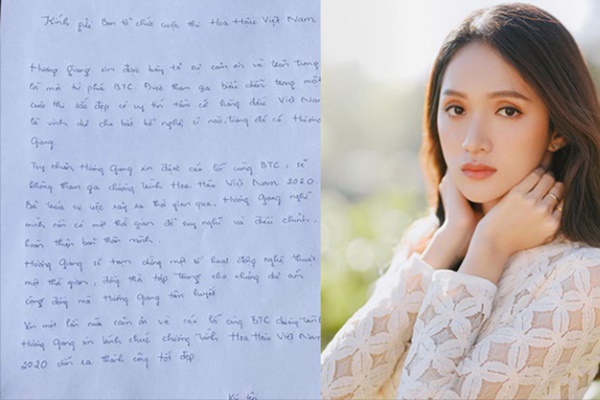 Kính gửi Ban tổ chức cuộc thi Hoa Hậu Việt Nam
Hương Giang xin được bày tỏ sự cảm ơn và trân trọng
lời mời từ phía BTC. Được tham gia biểu diễn trong một
cuộc thi sắc đẹp có uy tín tầm cỡ hàng đầu Việt Nam
là vinh dự cho bất kể nghệ sĩ nào, trong đó có Hương
Giang.
Tuy nhiên Hương Giang xin được cáo lỗi cùng BTC, sẽ
không tham gia chương trình Hoa Hậu Việt Nam 2020.
vì việc xảy ra thời gian qua, Hương Giang nghĩ
mình cần có một thời gian để suy nghĩ và điều chỉnh,
hoàn thiện bản thân mình.
Hương Giang sẽ tạm dừng một số hoạt động nghệ thuật
một thời gian, tập trung cho những dự án
cộng đồng mà Hương Giang tâm huyết.
Xin một lần nữa cảm ơn và cáo lỗi cùng BTC chương trình
Hương Giang xin kính chúc chương trình Hoa Hậu Việt Nam
2020 diễn ra thành công tốt đẹp.
Ký tên